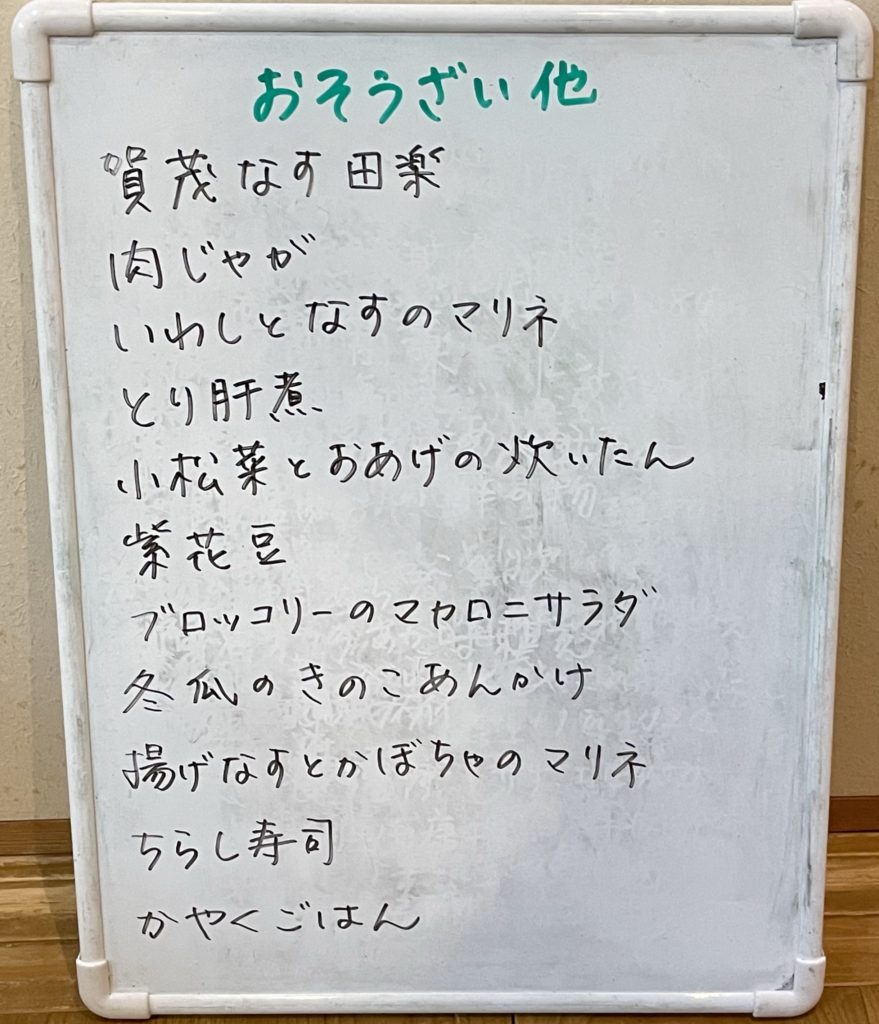 おそうざい他
賀茂なす田楽
肉じゃが
いわしとなすのマリネ
とり肝煮
小松菜とおあげの炊いたん
紫花豆
ブロッコリーのマカロニサラダ
冬瓜のきのこあんかけ
揚げなすとかぼちゃのマリネ
ちらし寿司
かやくごはん